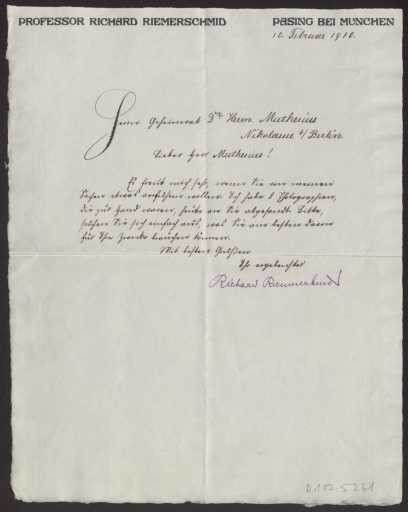 PROFESSOR RICHARD RIEMERSCHMID PASING BEI MÜNCHEN
10. Februar 1910.
Herrn Geheimrat Dr. Herm. Muthesius
Nikolassee b/Berlin.
Lieber Herr Muthesius!
Es freut mich sehr, wenn Sie von meinen
Sachen etwas vorführen wollen. Ich habe 8 Photographien,
die zur Hand waren, heute an Sie abgesandt. Bitte,
suchen Sie sich einfach aus, was Sie am besten davon
für Ihre Zwecke brauchen können.
Mit besten Grüßen
Ihr ergebenster
Richard Riemerschmid
D 102-5261